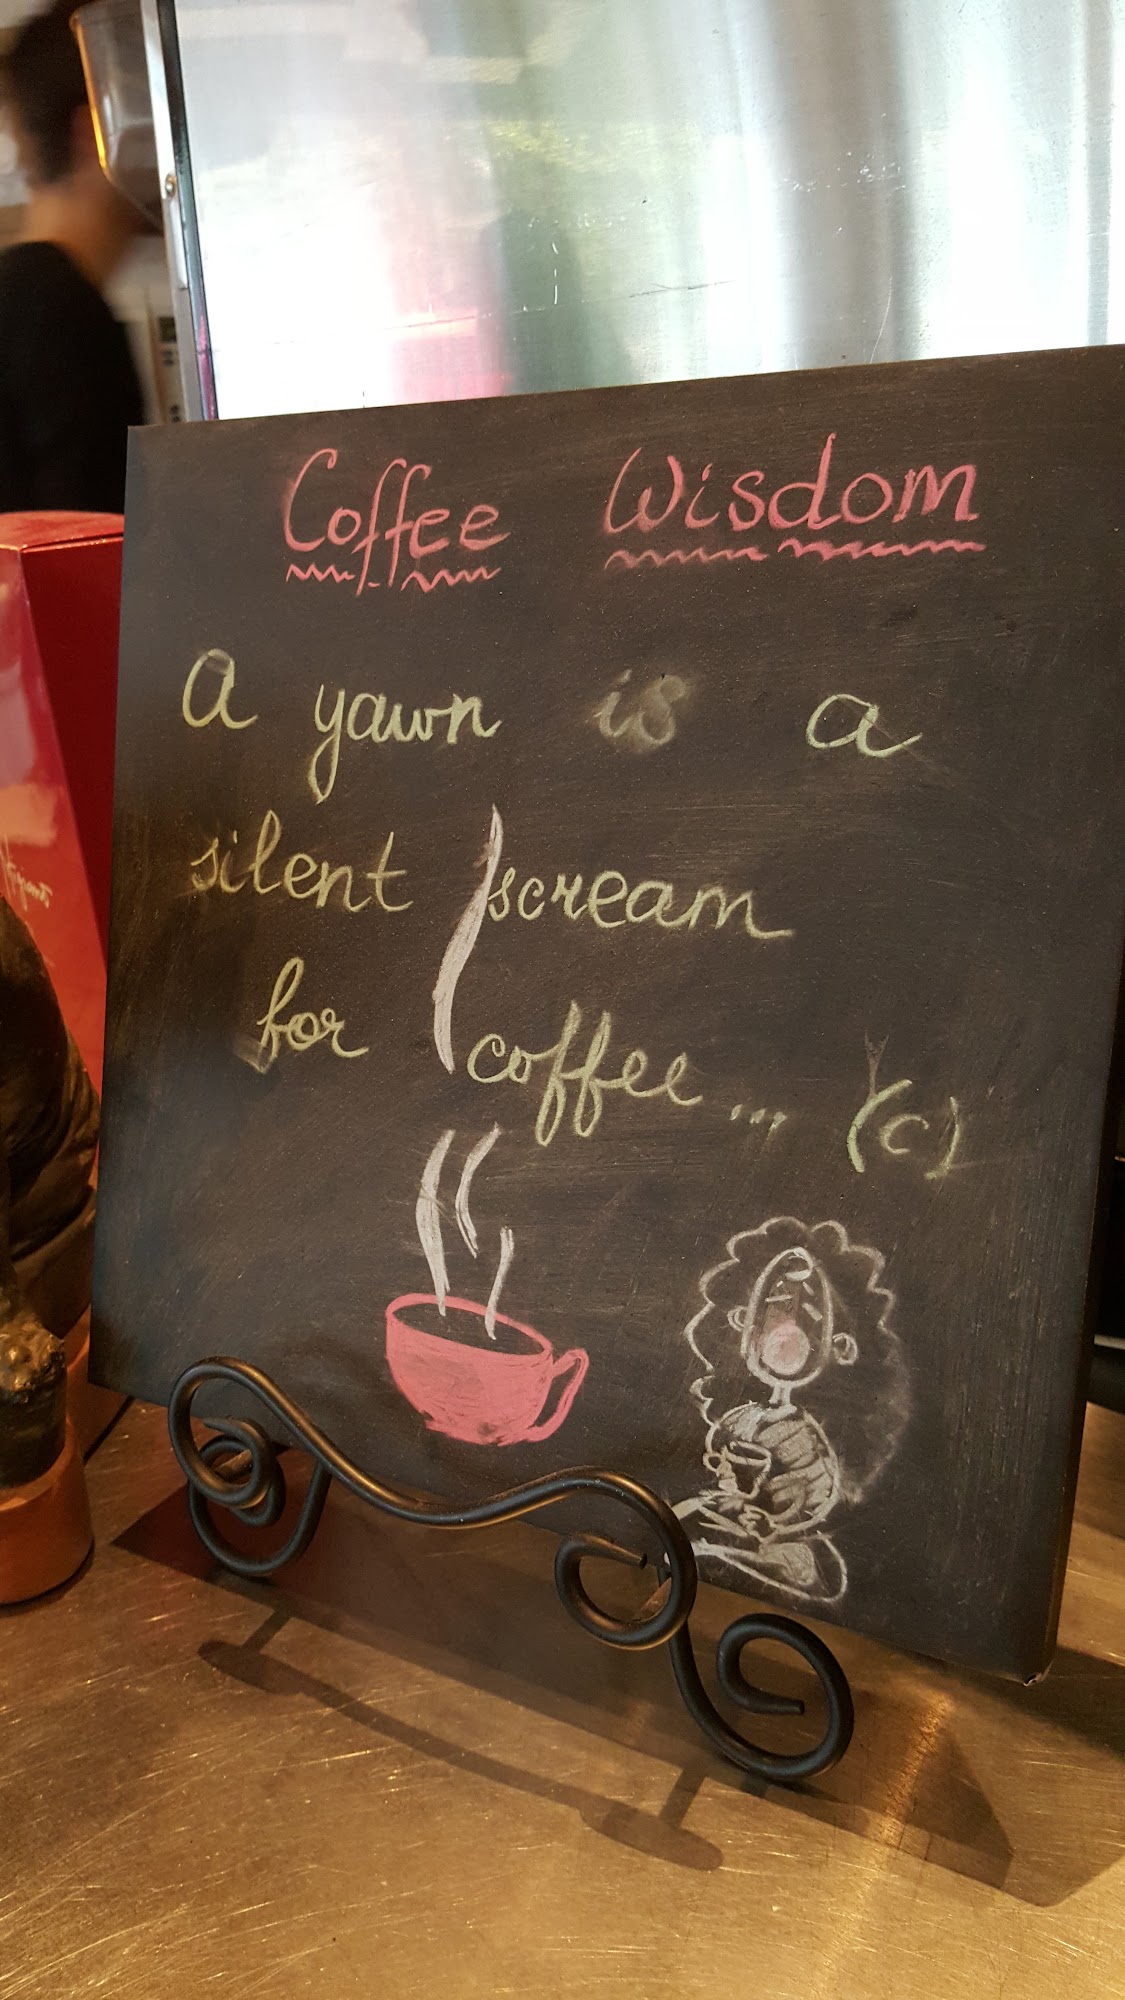 Coffee Wisdom
A yawn is a
silent scream
for coffee... (c)